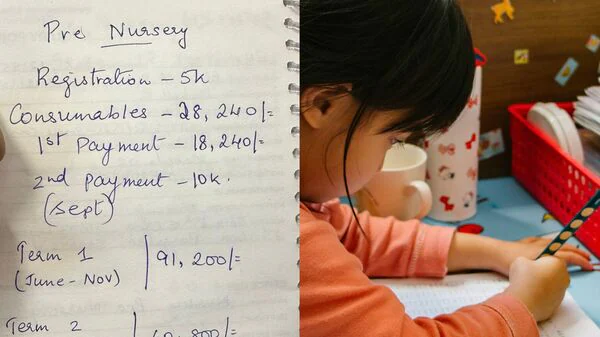 Pre Nursery
Registration - 5k
Consumables - 28,240/=
1st Payment - 18,240/=
2nd payment - 10k.
(Sept)
Term 1 | 91,200/=
(June - Nov)
Term 2 |